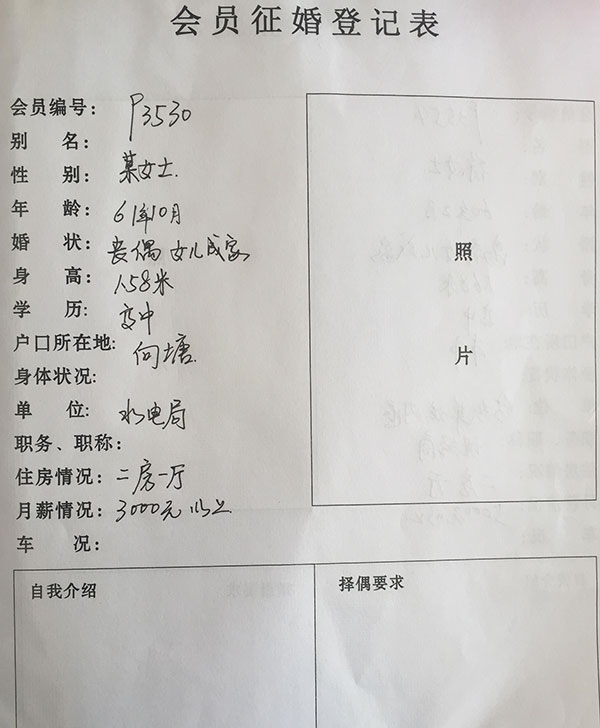 会员征婚登记表
会员编号: P3530
别 名:
性 别: 某女士.
年 龄: 61年10月
婚 状: 丧偶 女儿成家
身 高: 1.58米
学 历: 高中
户口所在地: 向塘.
身体状况:
单 位: 水电局
职务、职称:
住房情况: 二房一厅
月薪情况: 3000元以上
车 况:
照
片
自我介绍
择偶要求